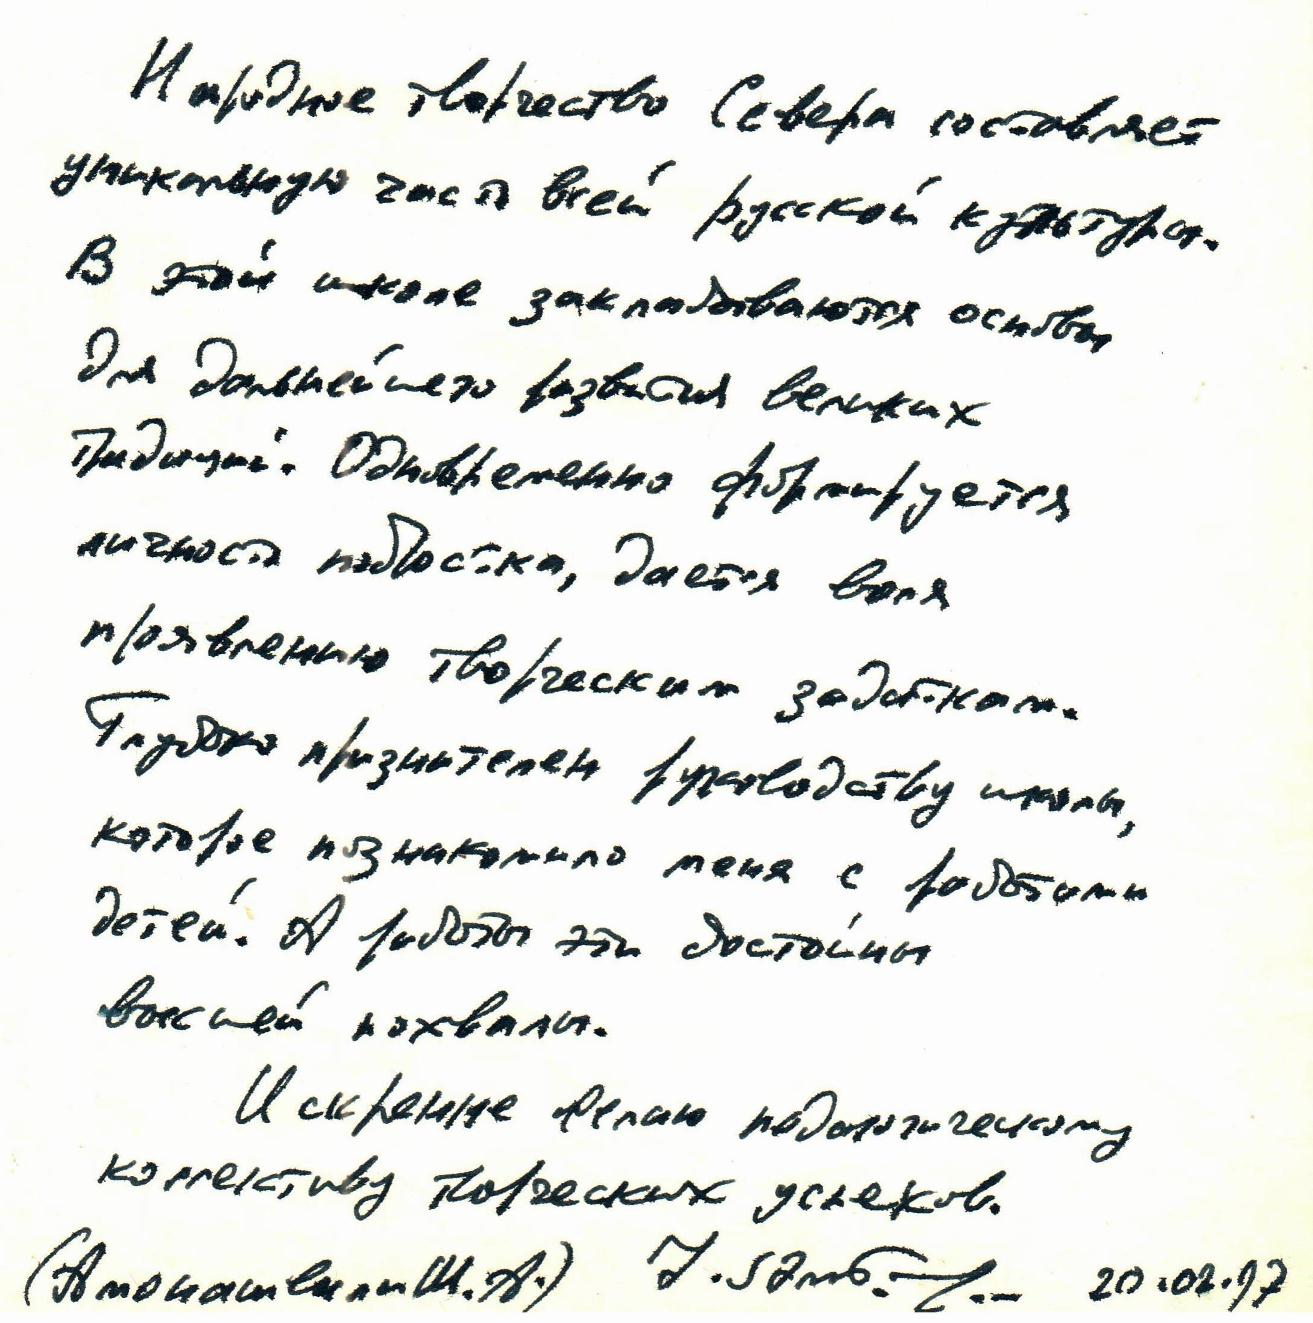 Народное творчество Севера составляет
уникальную часть всей русской культуры.
В этой школе закладываются основы
для дальнейшего развития великих
традиций. Одновременно формируется
личность подростка, дается воля
проявлению творческим задаткам.
Глубоко признателен руководству школы,
которое познакомило меня с работами
детей. А работы эти достойны
высшей похвалы.
Искренне желаю педагогическому
коллективу творческих успехов.
(Амонашвили Ш.А.) 20.02.97